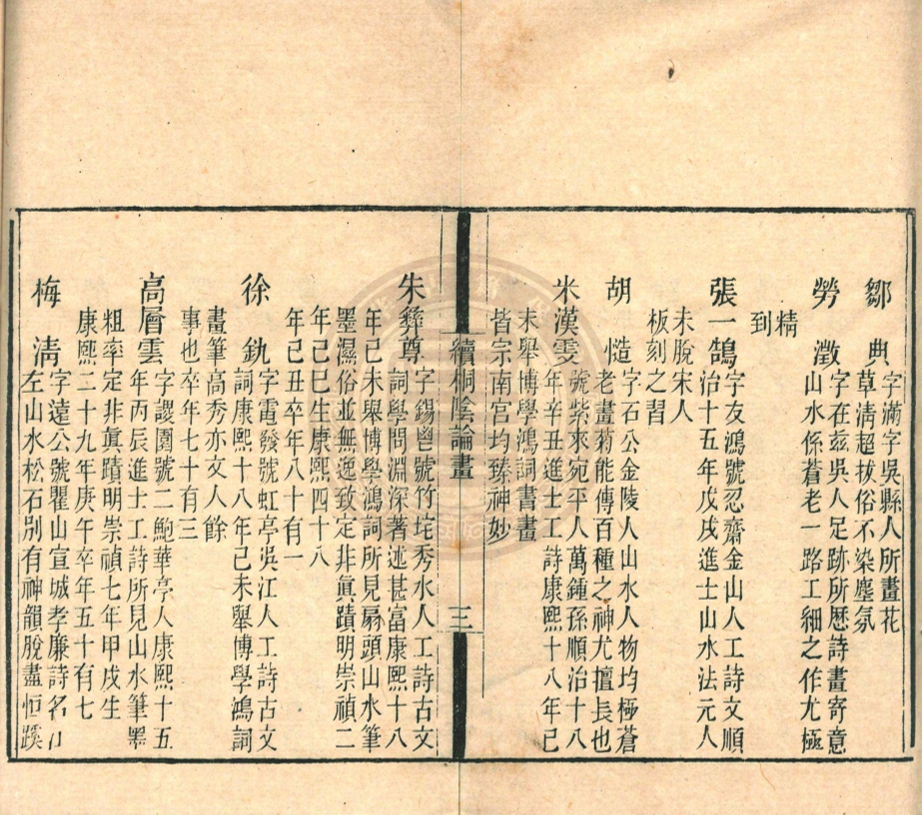 鄒典字滿字吳縣人所畫花
草淸超拔俗不染塵氛
勞澂字在茲吳人足跡所歷詩畫寄意
山水係蒼老一路工細之作尤極
精
到
張一鵠字友鴻號忍齋金山人工詩文順
治十五年戊戌進士山水法元人
未脫宋人
板刻之習
胡慥字石公金陵人山水人物均極蒼
老畫菊能傳百種之神尤擅長也
米漢雯號紫來宛平人萬鍾孫順治十八
年辛丑進士工詩康熙十八年己
未舉博學鴻詞書畫
皆宗南宮均臻神妙
續桐陰論畫
三
朱彝尊字錫鬯號竹垞秀水人工詩古文
詞學問淵深著述甚富康熙十八
年己未舉博學鴻詞所見扇頭山水筆
墨濕俗並無逸致定非眞蹟明崇禎二
年己巳生康熙四十八
年己丑卒年八十有一
徐釚字電發號虹亭吳江人工詩古文
詞康熙十八年己未舉博學鴻詞
畫筆高秀亦文人餘
事也卒年七十有三
高層雲字謖園號二鮑華亭人康熙十五
年丙辰進士工詩所見山水筆墨
粗率定非眞蹟明崇禎七年甲戌生
康熙二十九年庚午卒年五十有七
梅淸字遠公號瞿山宣城孝廉詩名江
左山水松石別有神韻脫盡恒蹊